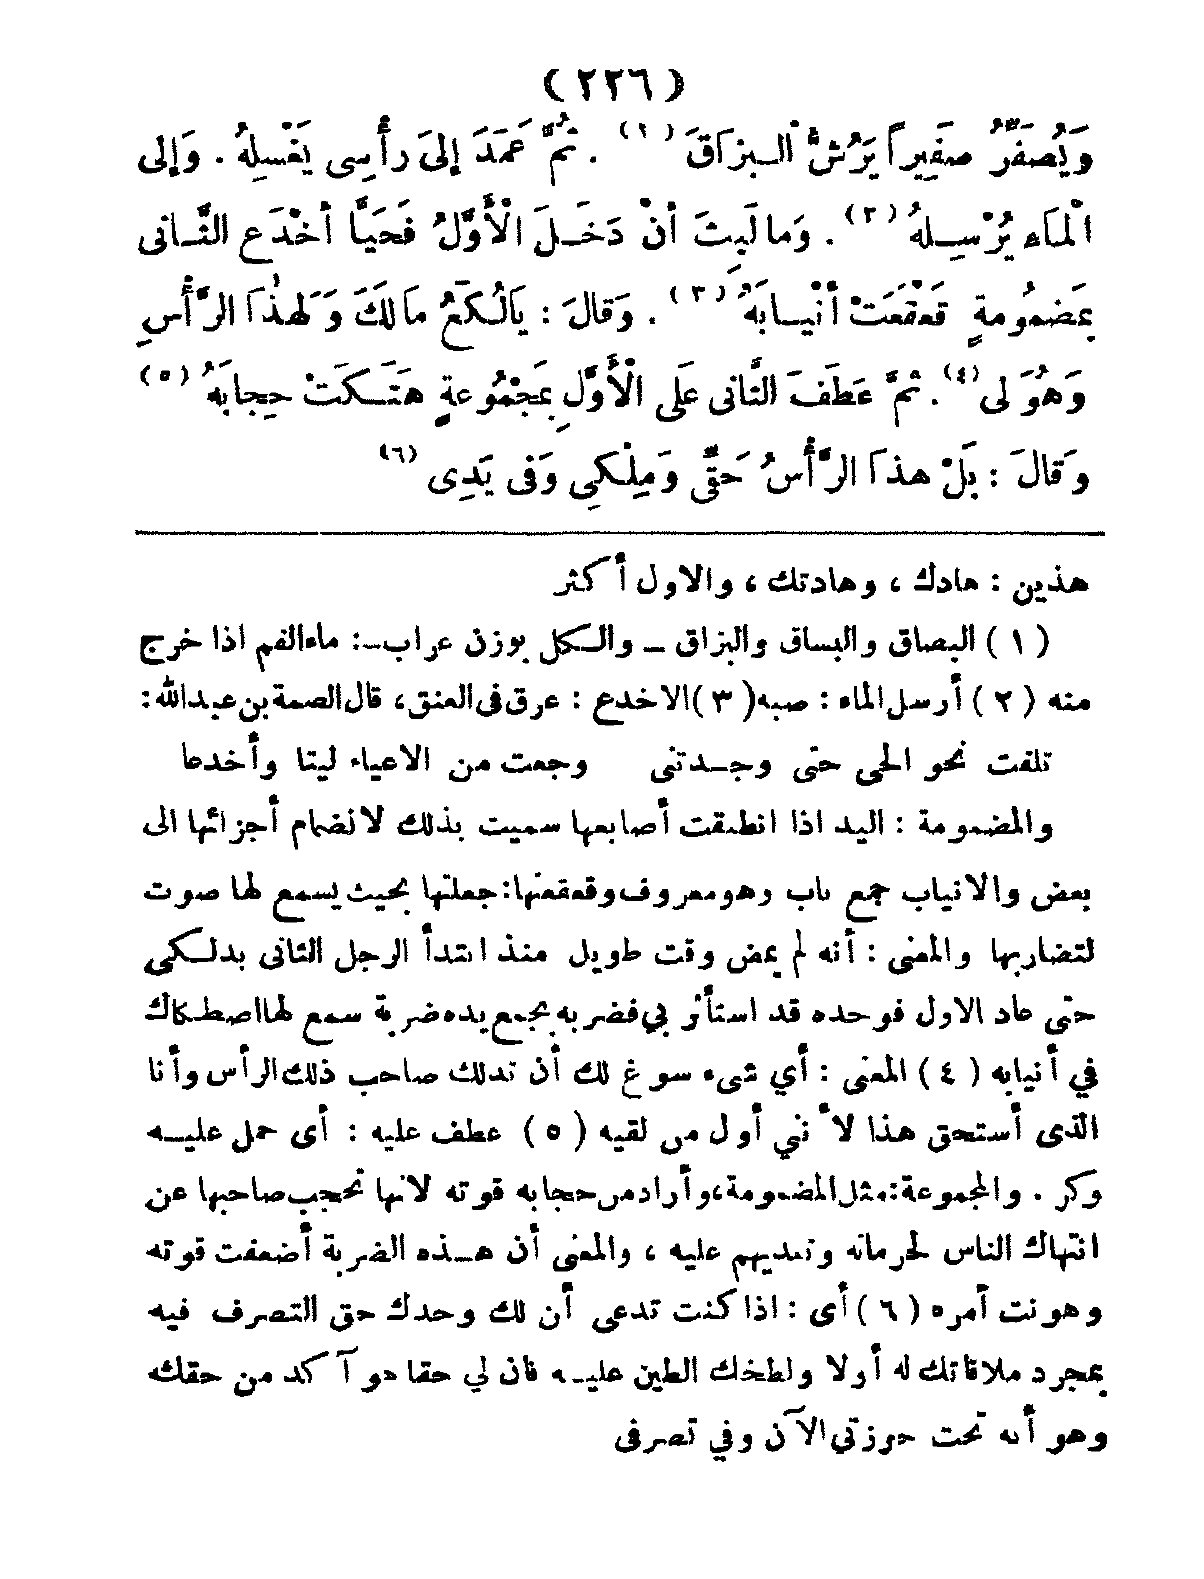 ( ٢٢٦ )
وَيُصَفِّرُ صَفِيراً يَرُشُّ الْبُزَاقَ (١) . ثُمَّ عَمَدَ إِلَى رَأْسِى يَغْسِلُهُ . وَإِلى
الْمَاءِ يُرْسِلُهُ (٢) . وَمَا لَبِثَ أَنْ دَخَلَ الْأَوَّلُ فَحَيَّا أَخْدَعَ الثَّانِى
بِمَضْمُومَةٍ قَعْقَعَتْ أَنْيَابَهُ (٣) . وَقَالَ : يَالُكَعُ مَالَكَ وَلِهٰذَا الرَّأْسِ
وَهُوَ لِى (٤) . ثُمَّ عَطَفَ الثَّانِى عَلَى الْأَوَّلِ بِمَجْمُوعَةٍ هَتَكَتْ حِجَابَهُ (٥)
وَقَالَ : بَلْ هذَا الرَّأْسُ حَقِّى وَمِلْكِى وَفِى يَدِى (٦)
هذين : هادك ، وهادتك ، والاول أكثر
( ١ ) البصاق والبساق والبزاق ــ والكل بوزن عراب ــ: ماء الفم اذا خرج
منه ( ٢ ) أرسل الماء : صبه ( ٣ ) الاخدع : عرق فى العنق ، قال الصمة بن عبد الله :
تلفت نحو الحى حتى وجدتنى وجعت من الاعياء ليتا وأخدعا
والمضمومة : اليد اذا انطبقت أصابعها سميت بذلك لانضمام أجزائها الى
بعض والانياب جمع ناب وهو معروف وقعقعتها : جعلتها بحيث يسمع لها صوت
لتضاربها والمعنى : أنه لم يمض وقت طويل منذ ابتدأ الرجل الثانى بدلكى
حتى عاد الاول فوجده قد استأثر بي فضربه بجمع يده ضربة سمع لها اصطكاك
في أنيابه ( ٤ ) المعنى : أي شىء سوغ لك أن تدلك صاحب ذلك الرأس وأنا
الذى أستحق هذا لأنني أول من لقيه ( ٥ ) عطف عليه : أى حمل عليه
وكر . والمجموعة : مثل المضمومة ، وأراد من حجابه قوته لانها تحجب صاحبها عن
انتهاك الناس لحرماته وتعديهم عليه ، والمعنى أن هذه الضربة أضعفت قوته
وهونت أمره ( ٦ ) أى : اذا كنت تدعى أن لك وحدك حق التصرف فيه
بمجرد ملاقاتك له أولا ولطخك الطين عليه فان لي حقا هو آكد من حقك
وهو أنه تحت حوزتي الآن وفي تصرفى